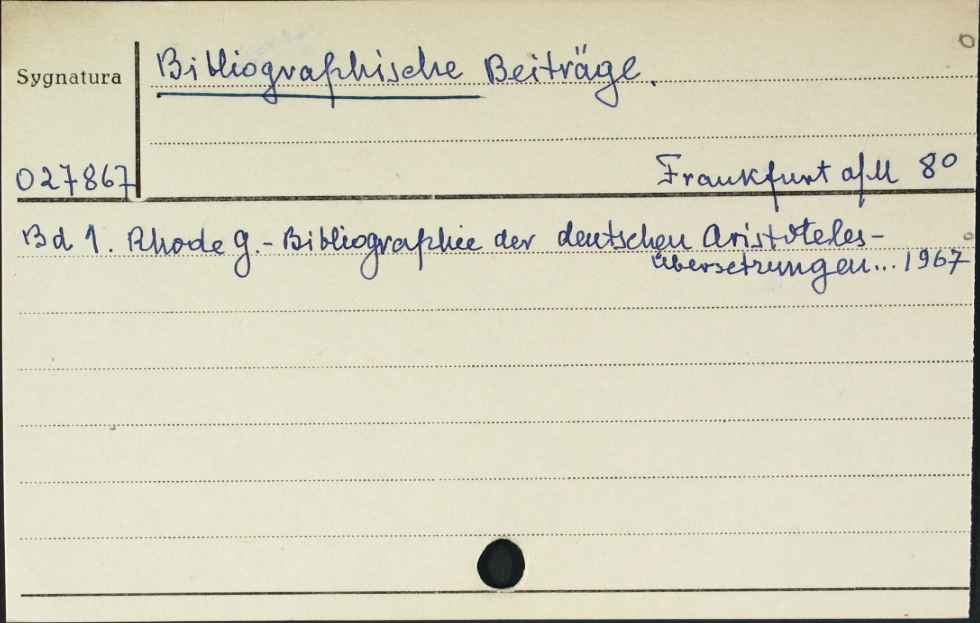 Sygnatura
Bibliographische Beiträge.
027867
Frankfurt a/M 8º
Bd 1. Rhode G. - Bibliographie der deutschen Aristoteles-
übersetzungen... 1967